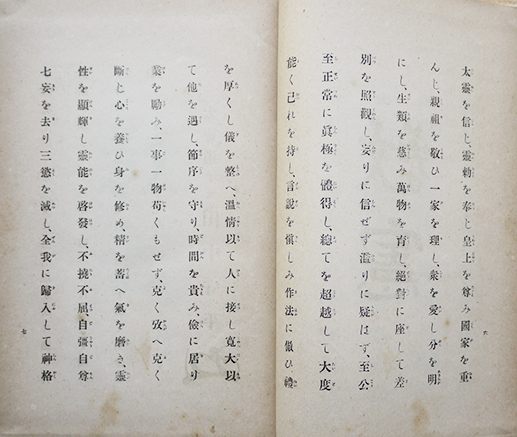 太靈を信し、靈勅を奉じ皇上を尊み國家を重
んじ、親祖を敬ひ一家を理し、衆を愛し分を明
にし、生類を慈み萬物を育し、絕對に座して差
別を照觀し、妄りに信ぜず濫りに疑はず、至公
至正常に眞極を體得し、總てを超越して大度
能く己れを持し、言說を愼しみ作法に倣ひ禮
六
を厚くし儀を整へ、溫情以て人に接し寬大以
て他を過し、節序を守り、時間を貴み、儉に居り
業を勵み、一事一物苟くもせず、克く攷へ克く
斷じ心を養ひ身を修め、精を蓄へ氣を磨き、靈
性を顯輝し靈能を啓發し、不撓不屈、自彊自尊
七妄を去り三慾を滅し、全我に歸入して神格
七